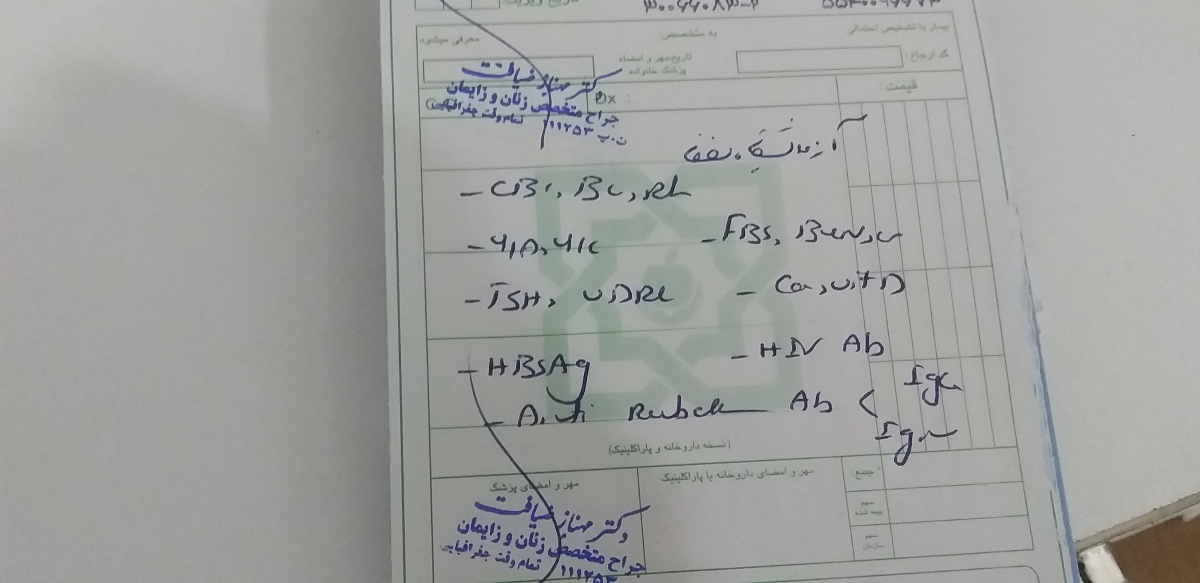 بیمار با تشخیص احتمالی
به متخصص:
معرفی میشود
کد ارجاع:
تاریخ،مهر و امضاء
پزشک خانواده
دکتر مهناز ضیافت
جراح متخصص زنان و زایمان
ن.پ ۱۱۱۲۵۳ تمام وقت جغرافیایی
قیمت:
DX :
- CBC, BG, Rh
- U/A, U/C - FBS, BUN, Cr
- TSH, VDRL - Ca, vit D
- HBsAg - HIV Ab
- Anti Rubella Ab < IgG
IgM
(نسخه داروخانه و پاراکلینیک)
مهر و امضای پزشک
مهر و امضای داروخانه یا پاراکلینیک
جمع:
سهم
بیمه شده
سهم
سازمان
دکتر مهناز ضیافت
جراح متخصص زنان و زایمان
۱۱۱۲۵۳ تمام وقت جغرافیایی